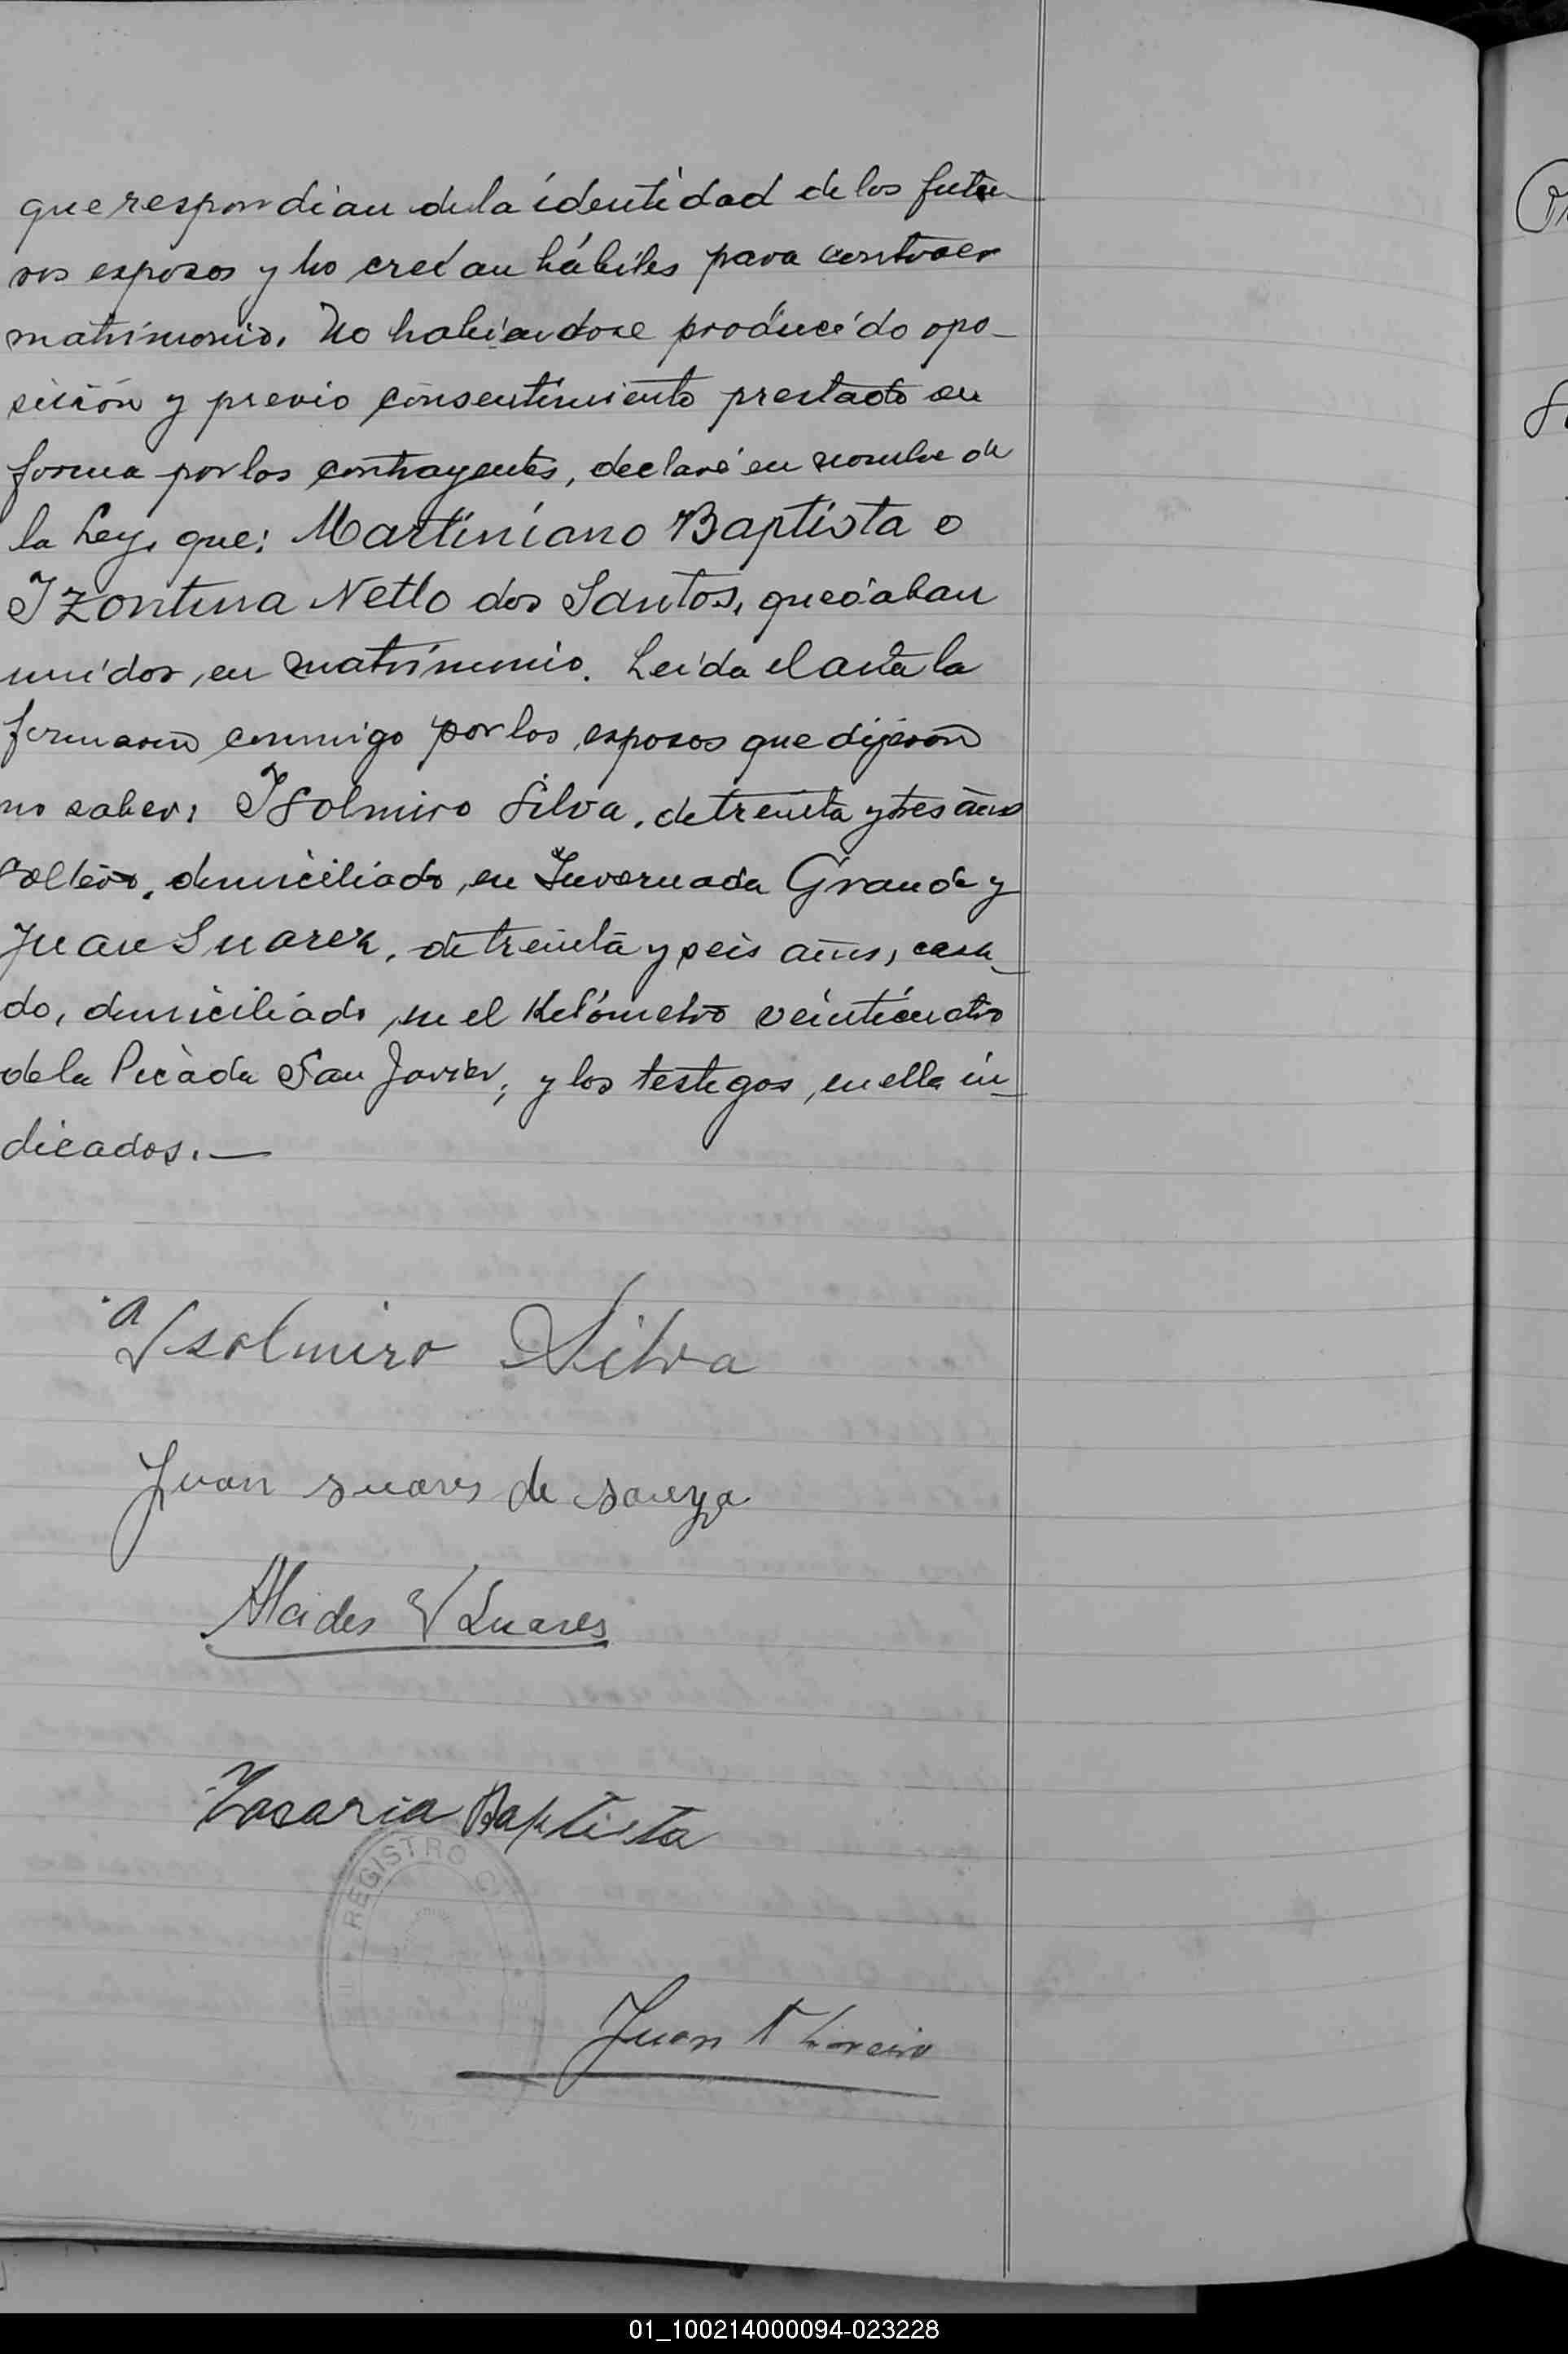 que respondian de la identidad de los futu-
ros esposos y los creían hábiles para contraer
matrimonio. No habiendose producido opo-
sición y previo consentimiento prestado en
forma por los contrayentes, declaré en nombre de
la Ley, que: Martiniano Baptista e
Izontina Netto dos Santos, quedaban
unidos, en matrimonio. Leida el acta la
firmaron conmigo por los esposos que dijeron
no saber: Isolmiro Silva, de treinta y tres años
soltero, domiciliado, en Invernada Grande y
Juan Suarez, de treinta y seis años, casa-
do, domiciliado, en el Kilómetro veinticuatro
de la Picada San Javier; y los testigos, en ella in-
dicados.—
Isolmiro Silva
Juan suares de souza
Alcides V Suares
Zacaria Baptista
REGISTRO C
Juan A
01_100214000094-023228